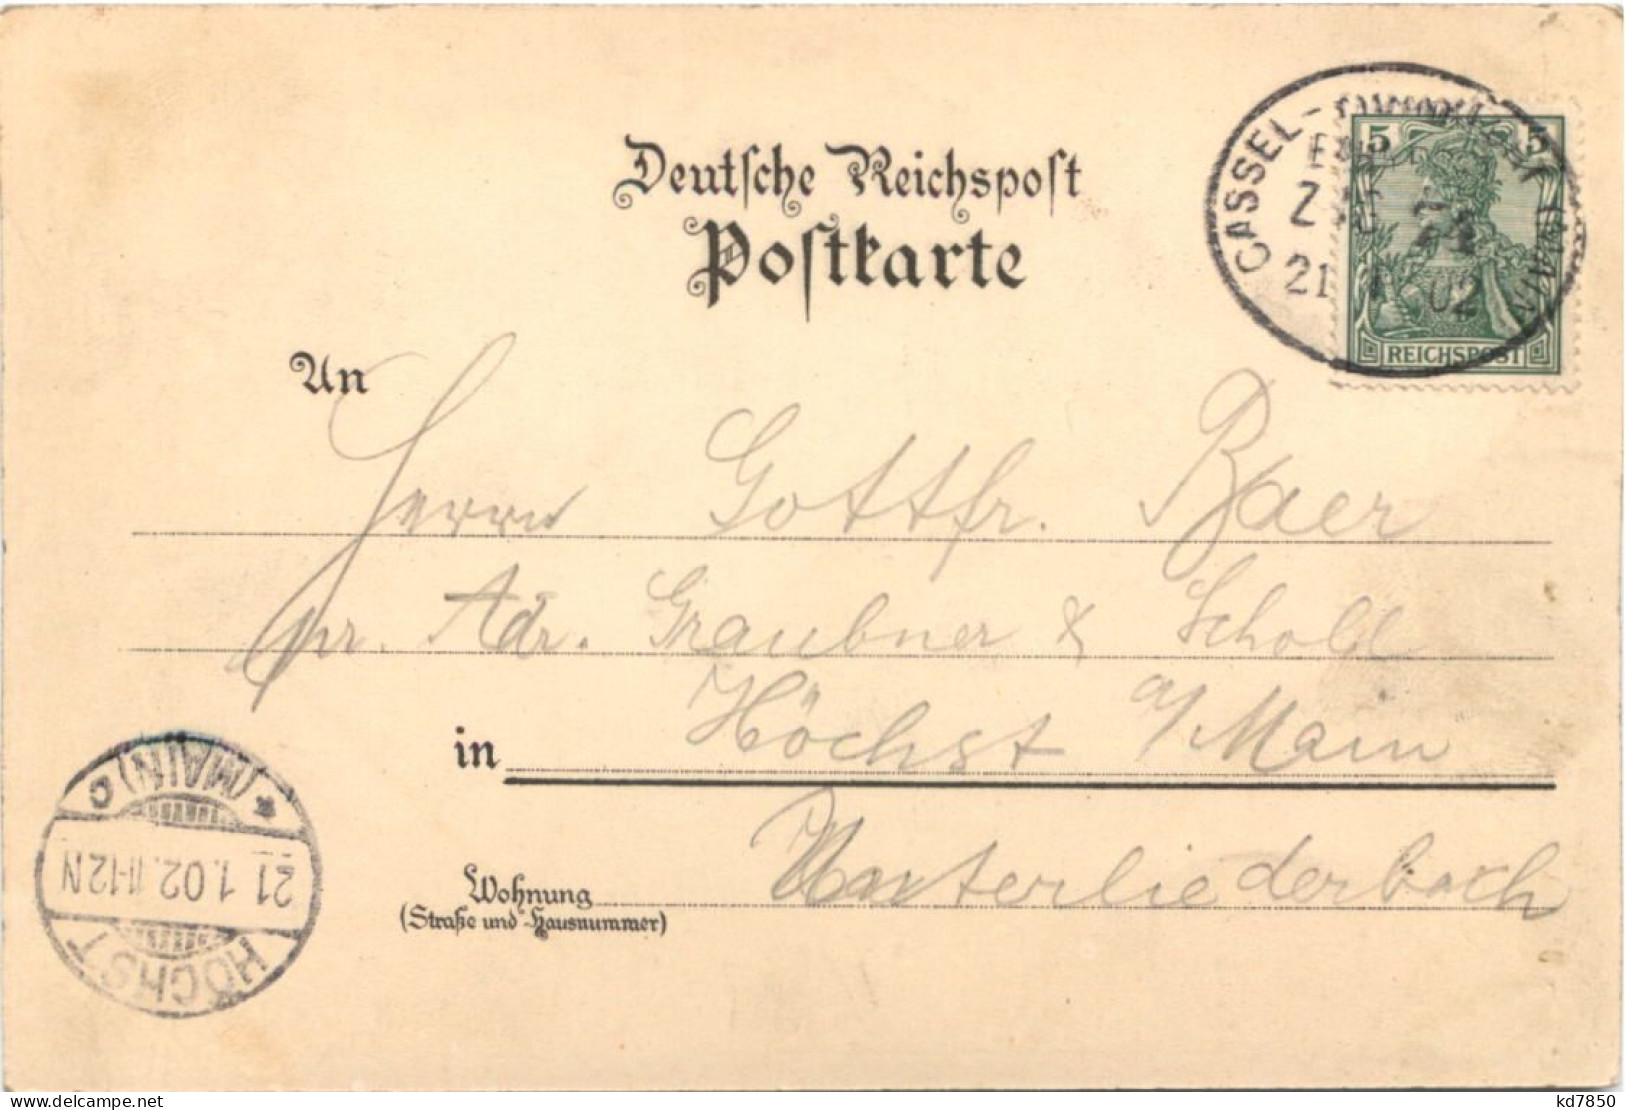 Deutsche Reichspost
Postkarte
CASSEL - FRANKFURT (MAIN)
ZUG
21 1 02
5 5
REICHSPOST
An
Herrn Gottfr. Baer
pr. Adr. Graubner & Scholl
in Höchst a/Main
Unterliederbach
Wohnung
(Straße und Hausnummer)
HÖCHST
21.1.02.11-12N
* (MAIN) C
www.delcampe.net
kd7850